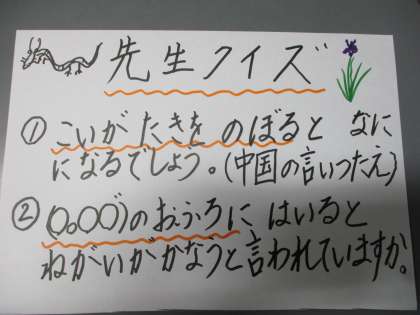 先生クイズ
① こいが たきを のぼると なに
になるでしょう。(中国の言いつたえ)
② (〇。〇〇)のおふろに はいると
ねがいがかなうと言われていますか。